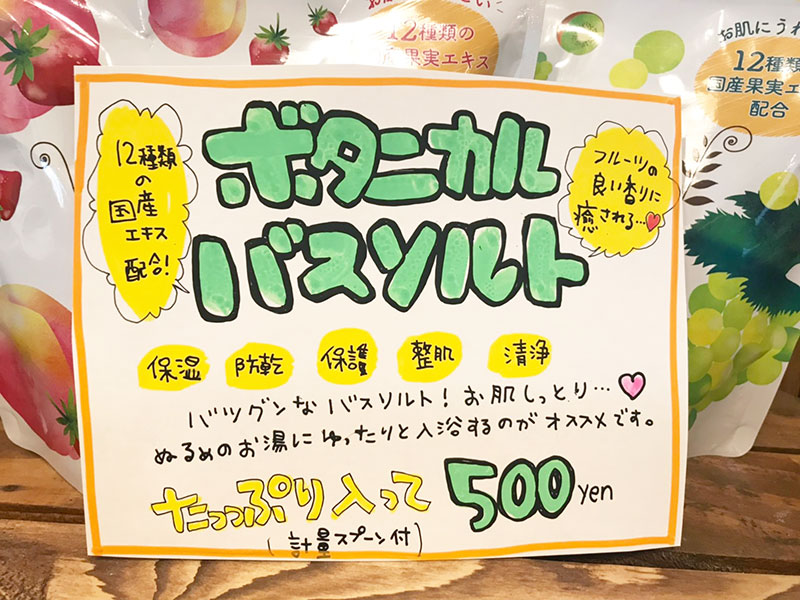 12種類の
国産果実エキス
お肌にうれ
12種類
国産果実エ
配合
12種類
の
国産
エキス
配合!
ボタニカル
バスソルト
フルーツの
良い香りに
癒される…
保湿 防乾 保護 整肌 清浄
バツグンなバスソルト!お肌しっとり…
ぬるめのお湯にゆったりと入浴するのがオススメです。
たっっぷり入って 500yen
(計量スプーン付)